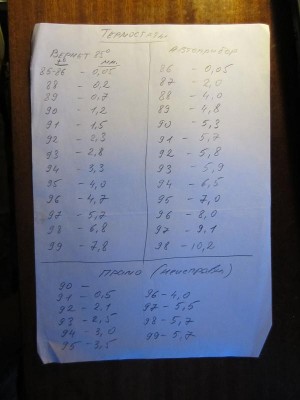 Термостаты
Вернет 85°
t° мм.
85-86 - 0,05
88 - 0,2
89 - 0,7
90 - 1,2
91 - 1,5
92 - 2,3
93 - 2,8
94 - 3,3
95 - 4,0
96 - 4,7
97 - 5,7
98 - 6,8
99 - 7,8
Автоприбор
86 - 0,05
87 - 2,0
88 - 4,0
89 - 4,8
90 - 5,3
91 - 5,7
92 - 5,8
93 - 5,9
94 - 6,5
95 - 7,0
96 - 8,0
97 - 9,1
98 - 10,2
Прамо (неисправн)
90 -
91 - 0,5
92 - 2,1
93 - 2,5
94 - 3,0
95 - 3,5
96 - 4,0
97 - 5,5
98 - 5,7
99 - 5,7